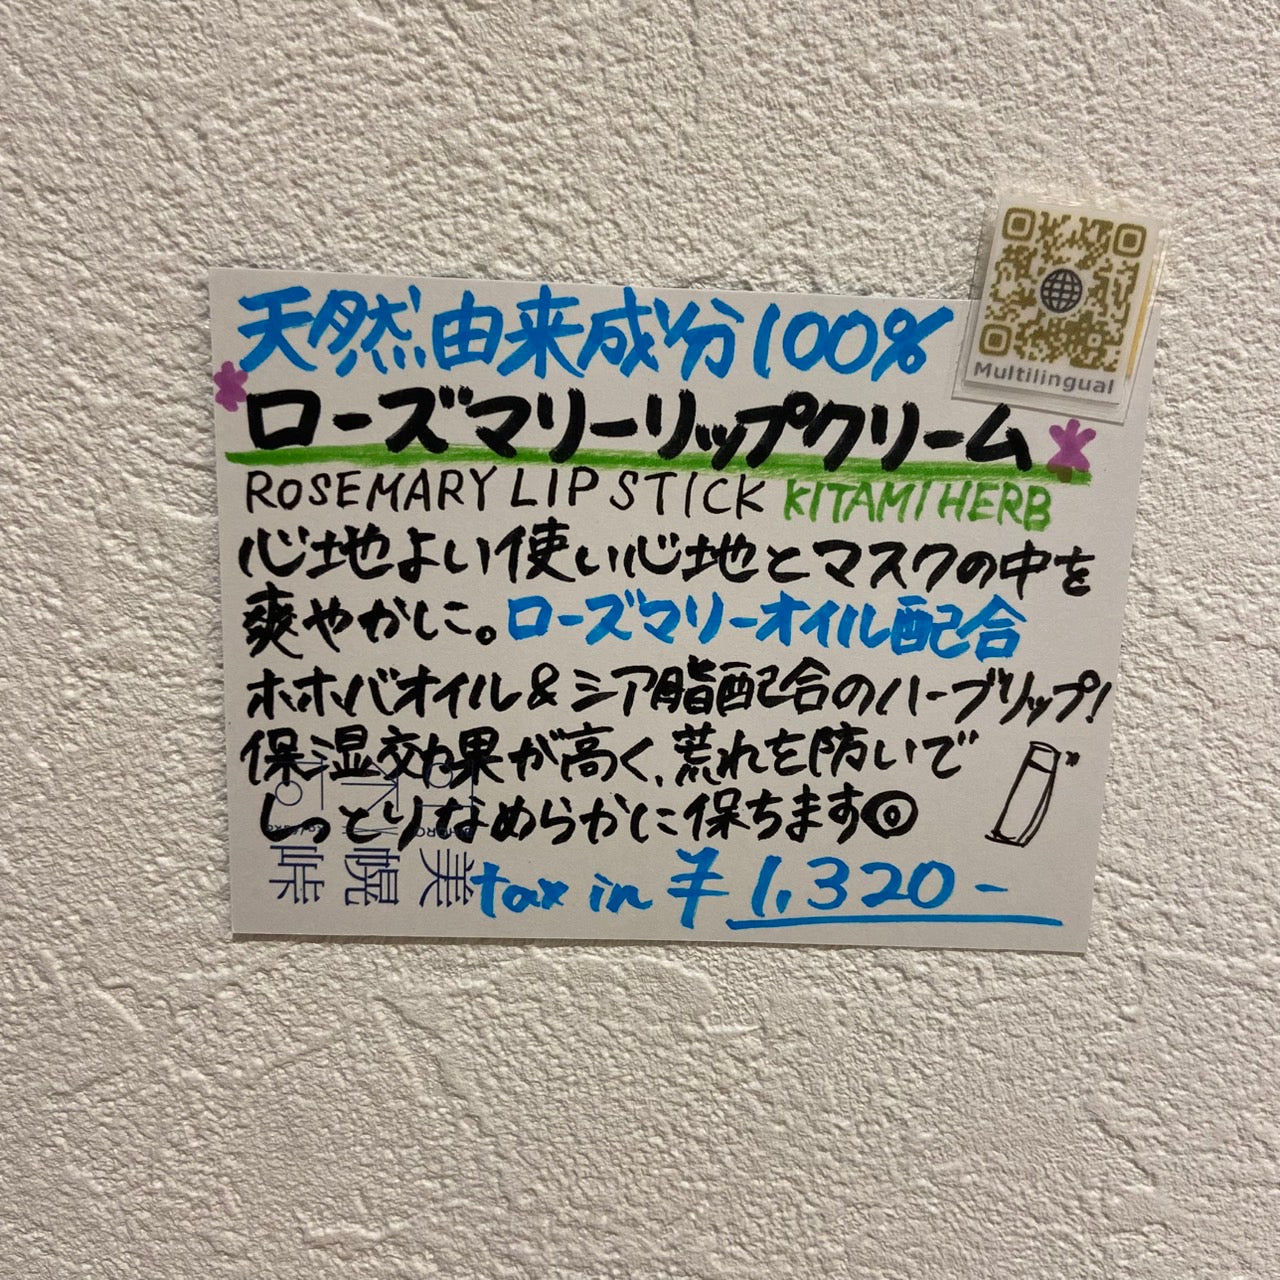 天然由来成分100%
ローズマリーリップクリーム
ROSEMARY LIP STICK KITAMI HERB
心地よい使い心地とマスクの中を
爽やかに。ローズマリーオイル配合
ホホバオイル&シア脂配合のハーブリップ!
保湿効果が高く、荒れを防いで
しっとりなめらかに保ちます◎
tax in ¥1,320-
美幌峠
Multilingual